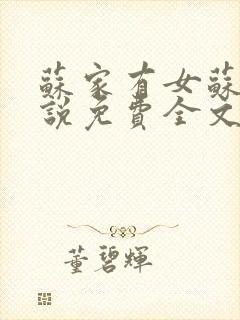 蘇家有女蘇
說免費全文
董碧輝